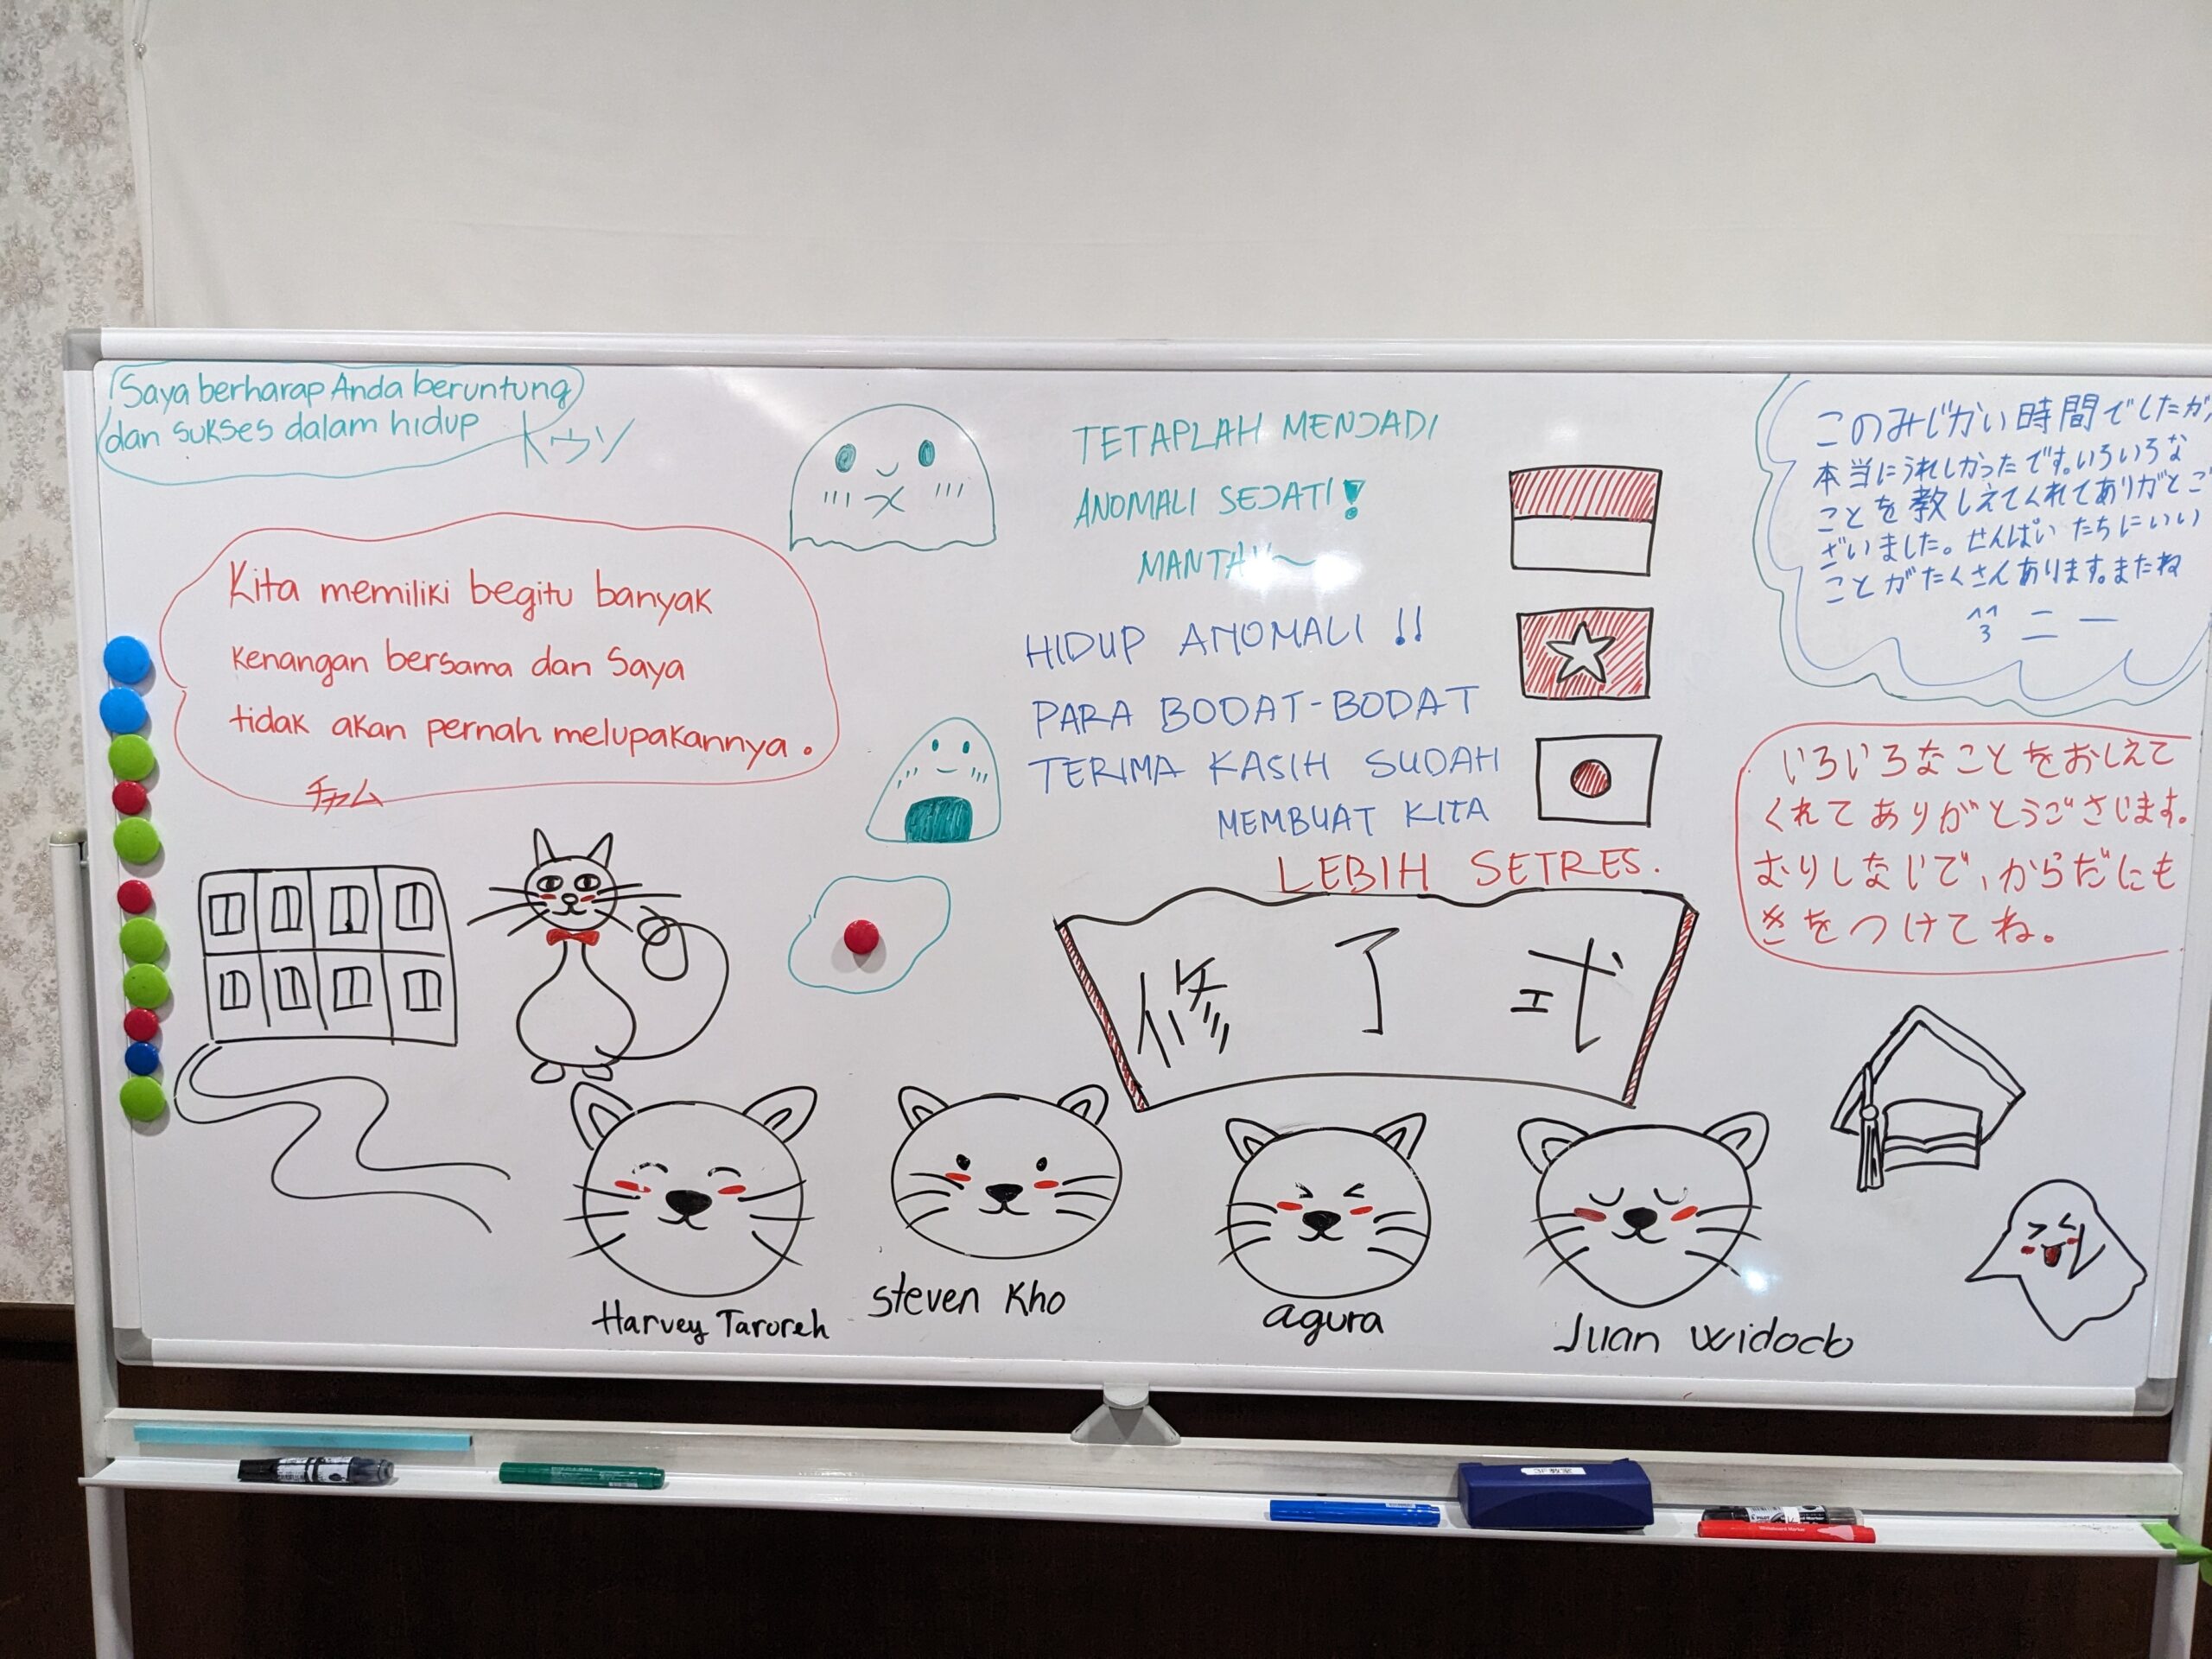 Saya berharap Anda beruntung
dan sukses dalam hidup
トゥソ
Kita memiliki begitu banyak
kenangan bersama dan Saya
tidak akan pernah melupakannya.
チャム
TETAPLAH MENJADI
ANOMALI SEJATI!
HIDUP ANOMALI !!
PARA BODAT-BODAT
TERIMA KASIH SUDAH
MEMBUAT KITA
LEBIH SETRES.
このみじかい時間でしたが
本当にうれしかったです。いろいろな
ことを教しえてくれてありがとご
ざいました。せんぱいたちにいい
ことがたくさんあります。またね
ニー
いろいろなことをおしえて
くれてありがとうごさじます。
むりしないで、からだにも
きをつけてね。
修了式
Harvey Taroreh
Steven Kho
agura
Juan widocb